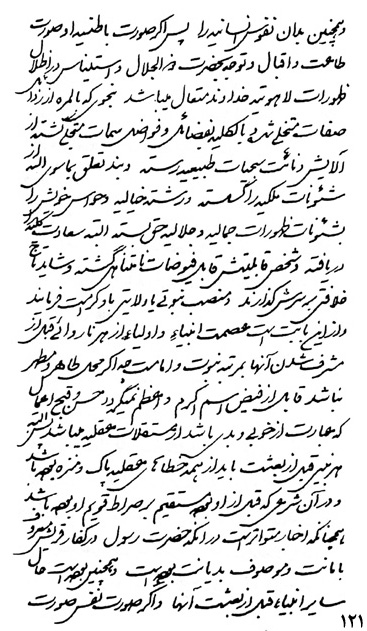 و همچنین بدان نفوس انسانیه را پس اگر صورت باطنیه او صورت
طاعت و اقبال و توجه بحضرت ذو الجلال و استیناس در اظلال
ظهورات لاهوتیه خداوند متعال میباشد بنحوی که بالمره از رذایل
صفات متخلی شده و بالکلیه بفضائل و فواضل سمات متحلی گشته از
آلایش دنائت سبحات طبیعیه رسته و بند تعلق بماسوی الله از
شئونات ملکیه را گسسته و رشته خیالیه و حواس خویش را
بشئونات ظهورات جمالیه و جلالیه حق بسته البته سعادت کلیه
دریافته و شخص قابلیتش قابل فیوضات نامتناهی گشته و شاید تاج
خلافتی بر سرش گذارند و منصب نبوتی یا ولایتی باو کرامت فرمایند
و از این بابت است عصمت انبیاء و اولیاء از هر ناروائی قبل از
مشرف شدن آنها بمرتبه نبوت و امامت چه اگر محلی طاهر و مطهر
نباشد قابل از فیض اسم اکرم و اعظم نمیگردد حسن و قبح اعمال
که عبارت از خوبی و بدی باشد از مستقلات عقلیه میباشد پس البته
هر نبی قبل از بعثت باید از همه خطاهای عقلیه پاک و منزه بوده باشد
و در آن شرعی که قبل از او بوده مستقیم بر صراط قویم او بوده باشد
همچنانکه اخبار متواتر است در آنکه حضرت رسول در کفار قریش معروف
بامانت و موصوف بدیانت بوده است و همچنین بوده است حال
سایر انبیاء قبل از بعثت آنها و اگر صورت نفس صورت
۱۲۱